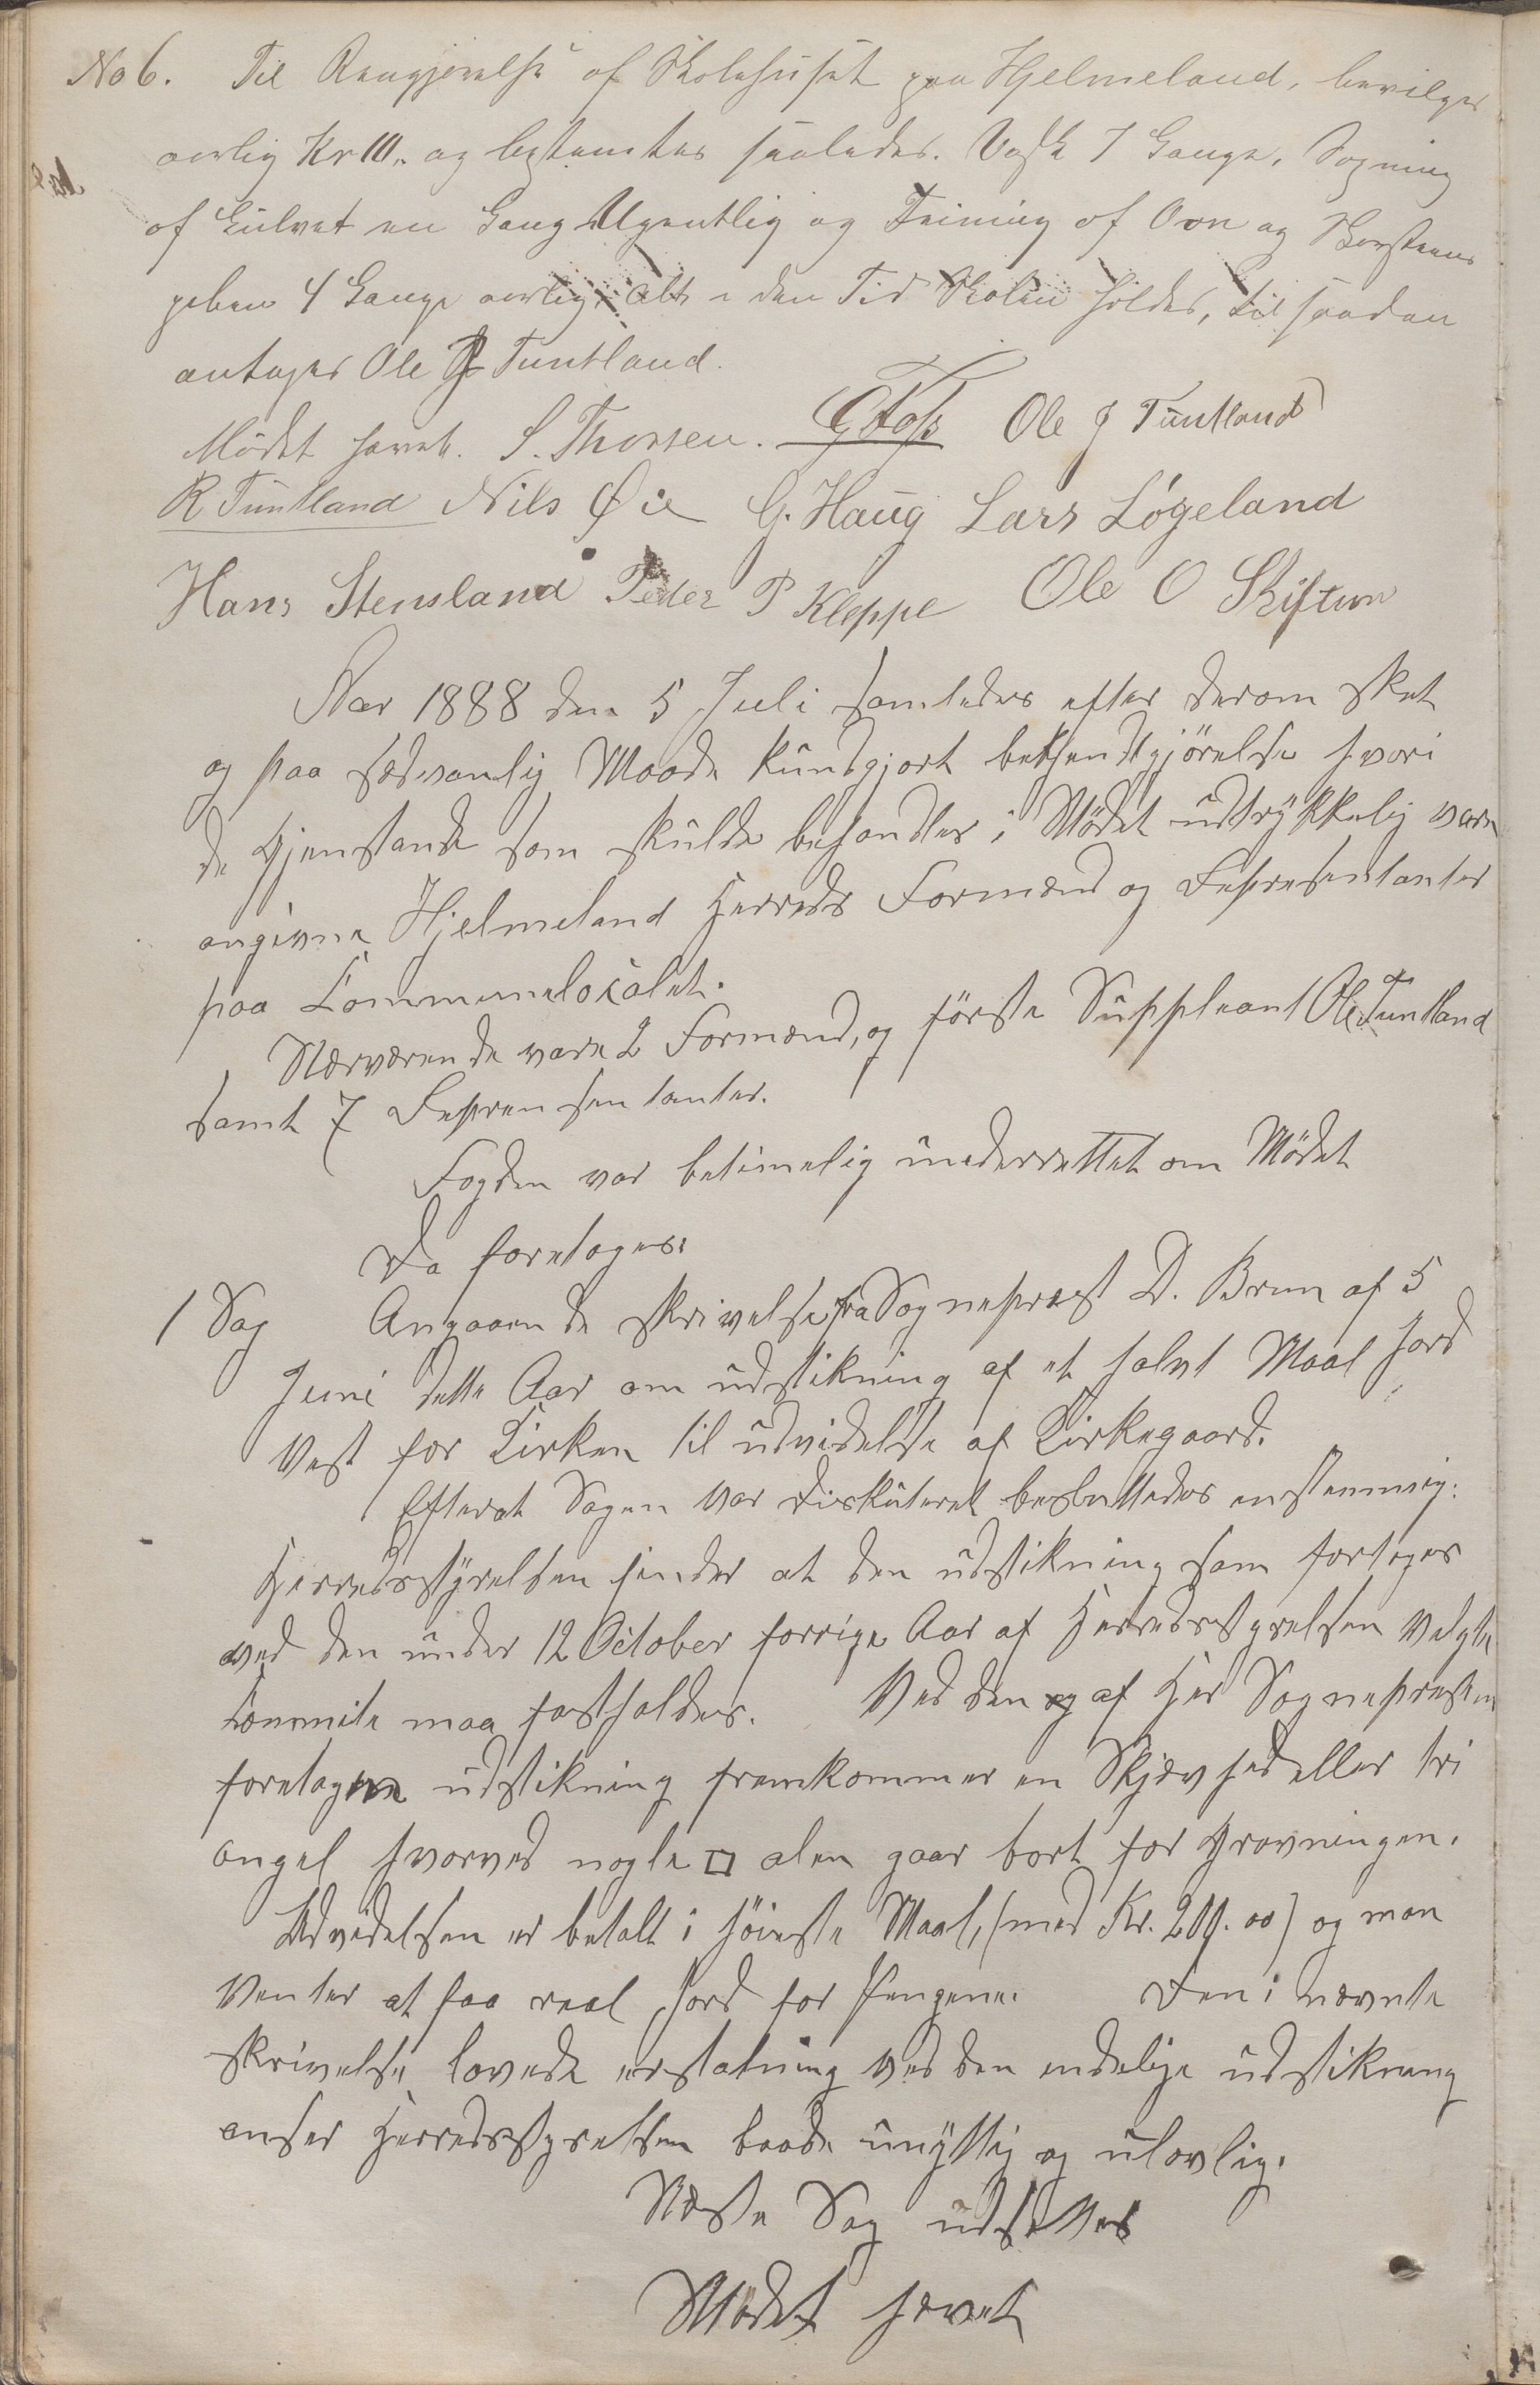 No 6. Til Rengjørelse af Skolehuset paa Hjelmeland, bevilges
aarlig Kr 10,, og bestemtes saaledes. Vask 7 Gange, Sopning
af Gulvet en Gang Ugentlig og Feining af Ovn og Skorstens
piben 4 Gange aarlig, Alt i den Tid Skolen holdes, til saadan
antages Ole J Tuntland.
Mødet hævet. S. Thorsen. G Foss Ole J Tuntland
R Tuntland Nils Øie G. Haug Lars Løgeland
Hans Stensland Peder P Kleppe Ole O Skiftun
Aar 1888 den 5 Juli samledes efter derom sket
og paa sedvanlig Maade kundgjort bekjendtgjørelse hvori
de Gjenstande som skulde behandles i Mødet udtrykkelig vare
angivne Hjelmeland Herreds Formænd og Represintanter
paa Communelocalet.
Nærværende vare 2 Formænd, og første Suppleant Ole J Tuntland
samt 7 Represensentanter.
Fogden var betimelig underrettet om Mødet
Da foretoges:
1 Sag Angaaende skrivelse fra Sogneprest D. Brun af 5
Juni dette Aar om udstikning af et halvt Maal Jord
Vest for Kirken til udvidelse af Kirkegaard.
Efterat Sagen var diskuteret besluttedes enstemmig:
Herredsstyrelsen finder at den udstikning som fortoges
ved den under 12 October forrige Aar af Herredsstyrelsen valgte
Commite maa fastholdes. Ved den af Her Sognepresten
foretagne udstikning fremkommer en Skjævhed eller tri
angel hvorved nogle □ alen gaar bort for Gravningen.
Udvidelsen er betalt i høieste Maal, (med Kr. 200.00) og man
venter at faa real Jord for Pengene. Den i nævnte
skrivelse lovede erstatning ved den endelige udstikning
anser Herredsstyrelsen baade unyttig og ulovlig.
Næste Sag udsættes
Mødet hævet